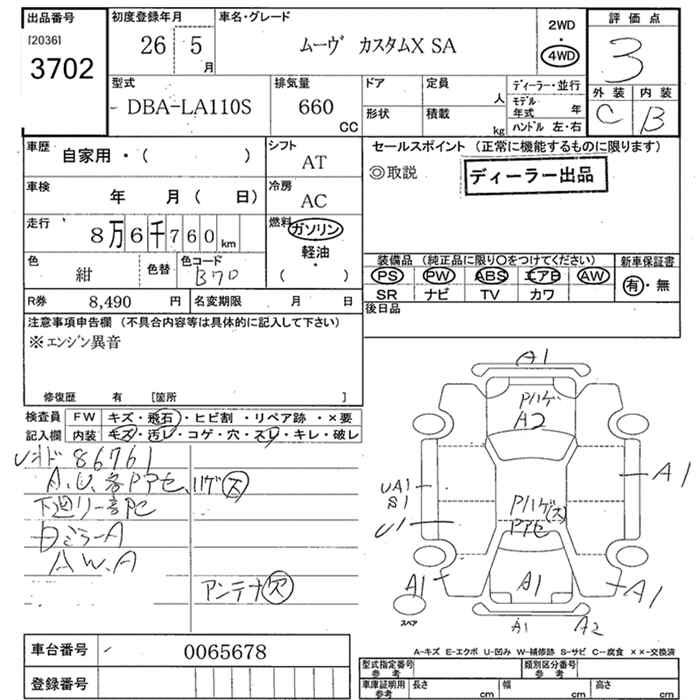 出品番号
[2036]
3702
初度登録年月
26 5
月
車名・グレード
ムーヴ カスタムX SA
2WD
・
4WD
評価点
3
外装 内装
C B
型式
DBA-LA110S
排気量
660
CC
ドア
定員
人
形状
積載
kg
ディーラー・並行
モデル年式 年
ハンドル 左・右
車歴
自家用・( )
シフト
AT
車検
年 月( 日)
冷房
AC
走行
8万6千760km
燃料
ガソリン
・
軽油
( )
色
紺
色替
色コード
B70
R券 8,490 円
名変期限 月 日
セールスポイント (正常に機能するものに限ります)
◎取説
ディーラー出品
装備品 (純正品に限り○をつけてください)
新車保証書
PS PW ABS エアB AW
SR ナビ TV カワ
有・無
後日品
注意事項申告欄 (不具合内容等は具体的に記入して下さい)
※エンジン異音
修復歴 有 [箇所 ]
検査員
記入欄
FW キズ・飛石・ヒビ割・リペア跡・×要
内装 キズ・汚レ・コゲ・穴・スレ・キレ・破レ
86761
A.U.各PアセハゲX
下廻り一部PC
ミラーA
A.W.A
アンテナ欠
A1
Pハゲ
A2
UA1
S1
U1
A1
Pハゲ
Pアセ
A1
A1
A1
スペア
A1
A2
A-キズ E-エクボ U-凹み W-補修跡 S-サビ C-腐食 ××-交換済
車台番号 0065678
登録番号
型式指定番号
参考
類別区分番号
参考
車庫証明用
参考
長さ cm
幅 cm
高さ cm